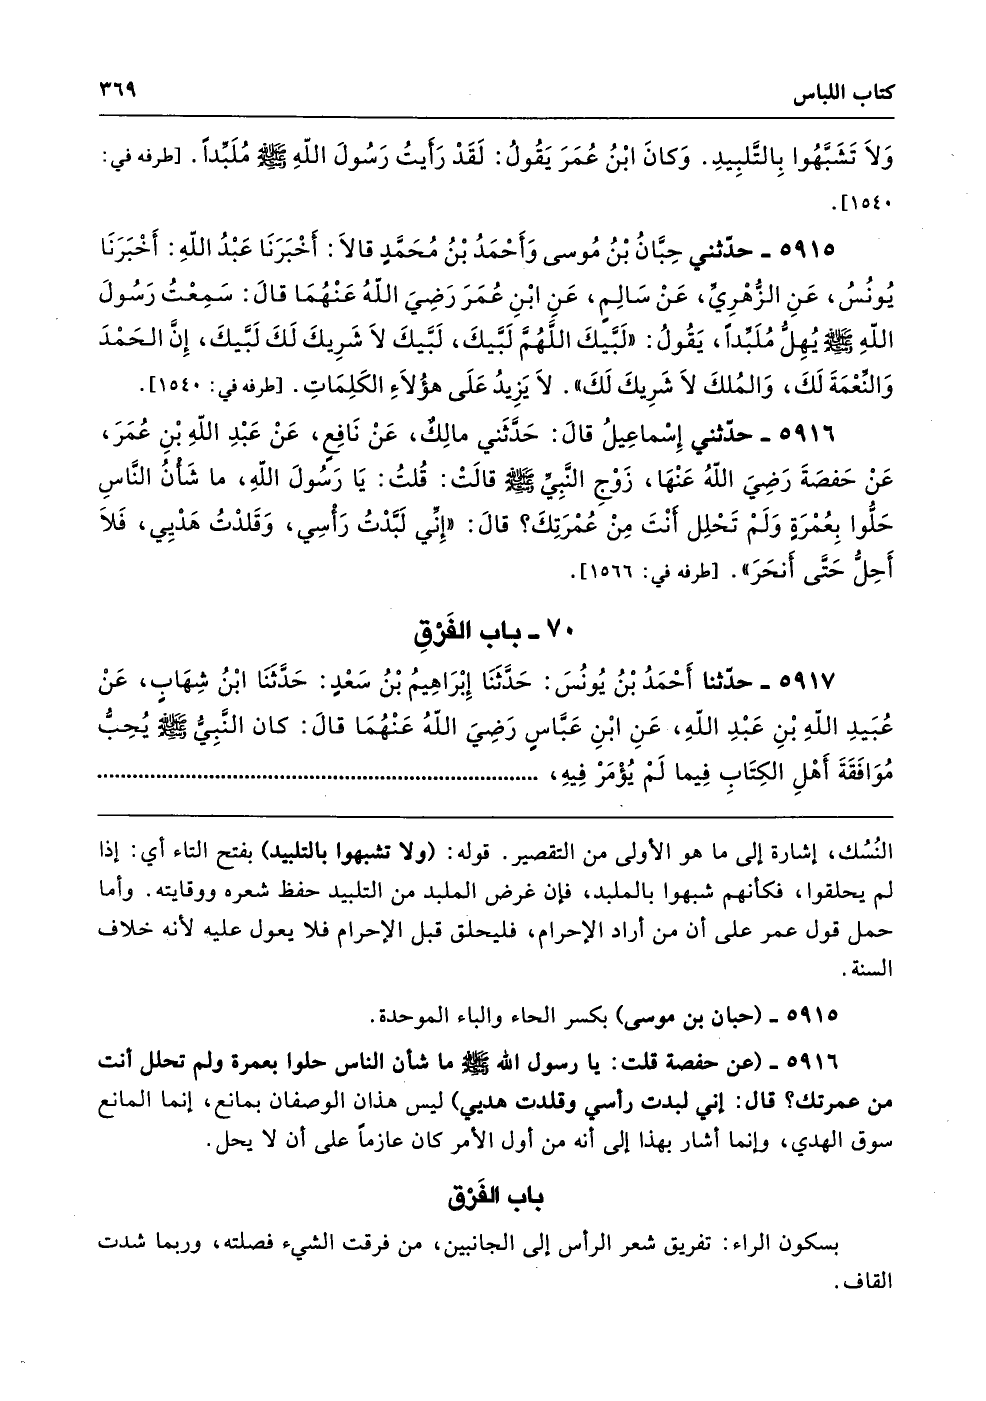 كتاب اللباس ٣٦٩
وَلاَ تَشَبَّهُوا بِالتَّلبِيدِ. وَكانَ ابْنُ عُمَرَ يَقُولُ: لَقَدْ رَأَيتُ رَسُولَ اللّهِ ﷺ مُلَبِّداً. [طرفه في:
١٥٤٠].
٥٩١٥ ـ حدّثني حِبَّانُ بْنُ مُوسى وَأَحْمَدُ بْنُ مُحَمَّدٍ قالاَ: أَخْبَرَنَا عَبْدُ اللّهِ: أَخْبَرَنَا
يُونُسُ، عَنِ الزُّهْرِيِّ، عَنْ سَالِمٍ، عَنِ ابْنِ عُمَرَ رَضِيَ اللّهُ عَنْهُمَا قالَ: سَمِعْتُ رَسُولَ
اللّهِ ﷺ يُهِلُّ مُلَبِّداً، يَقُولُ: «لَبَّيكَ اللَّهُمَّ لَبَّيكَ، لَبَّيكَ لاَ شَرِيكَ لَكَ لَبَّيكَ، إِنَّ الحَمْدَ
وَالنِّعْمَةَ لَكَ، وَالمُلكَ لاَ شَرِيكَ لَكَ». لاَ يَزِيدُ عَلَى هؤُلاَءِ الكَلِمَاتِ. [طرفه في: ١٥٤٠].
٥٩١٦ ـ حدّثني إِسْماعِيلُ قالَ: حَدَّثَني مالِكٌ، عَنْ نَافِعٍ، عَنْ عَبْدِ اللّهِ بْنِ عُمَرَ،
عَنْ حَفصَةَ رَضِيَ اللّهُ عَنْهَا، زَوْجِ النَّبِيِّ ﷺ قالَتْ: قُلتُ: يَا رَسُولَ اللّهِ، ما شَأْنُ النَّاسِ
حَلُّوا بِعُمْرَةٍ وَلَمْ تَحْلِل أَنْتَ مِنْ عُمْرَتِكَ؟ قالَ: «إِنِّي لَبَّدْتُ رَأْسِي، وَقَلدْتُ هَدْيِي، فَلاَ
أَحِلُّ حَتَّى أَنحَرَ». [طرفه في: ١٥٦٦].
٧٠ ـ باب الفَرْقِ
٥٩١٧ ـ حدّثنا أَحْمَدُ بْنُ يُونُسَ: حَدَّثَنَا إِبْرَاهِيمُ بْنُ سَعْدٍ: حَدَّثَنَا ابْنُ شِهَابٍ، عَنْ
عُبَيدِ اللّهِ بْنِ عَبْدِ اللّهِ، عَنِ ابْنِ عَبَّاسٍ رَضِيَ اللّهُ عَنْهُمَا قالَ: كان النَّبِيُّ ﷺ يُحِبُّ
مُوَافَقَةَ أَهْلِ الكِتَابِ فِيما لَمْ يُؤْمَرْ فِيهِ، ..........................................................................
النُسُك، إشارة إلى ما هو الأولى من التقصير. قوله: (ولا تشبهوا بالتلبيد) بفتح التاء أي: إذا
لم يحلقوا، فكأنهم شبهوا بالملبد، فإن غرض الملبد من التلبيد حفظ شعره ووقايته. وأما
حمل قول عمر على أن من أراد الإحرام، فليحلق قبل الإحرام فلا يعول عليه لأنه خلاف
السنة.
٥٩١٥ ـ (حبان بن موسى) بكسر الحاء والباء الموحدة.
٥٩١٦ ـ (عن حفصة قلت: يا رسول الله ﷺ ما شأن الناس حلوا بعمرة ولم تحلل أنت
من عمرتك؟ قال: إني لبدت رأسي وقلدت هديي) ليس هذان الوصفان بمانع، إنما المانع
سوق الهدي، وإنما أشار بهذا إلى أنه من أول الأمر كان عازماً على أن لا يحل.
باب الفَرْق
بسكون الراء: تفريق شعر الرأس إلى الجانبين، من فرقت الشيء فصلته، وربما شدت
القاف.